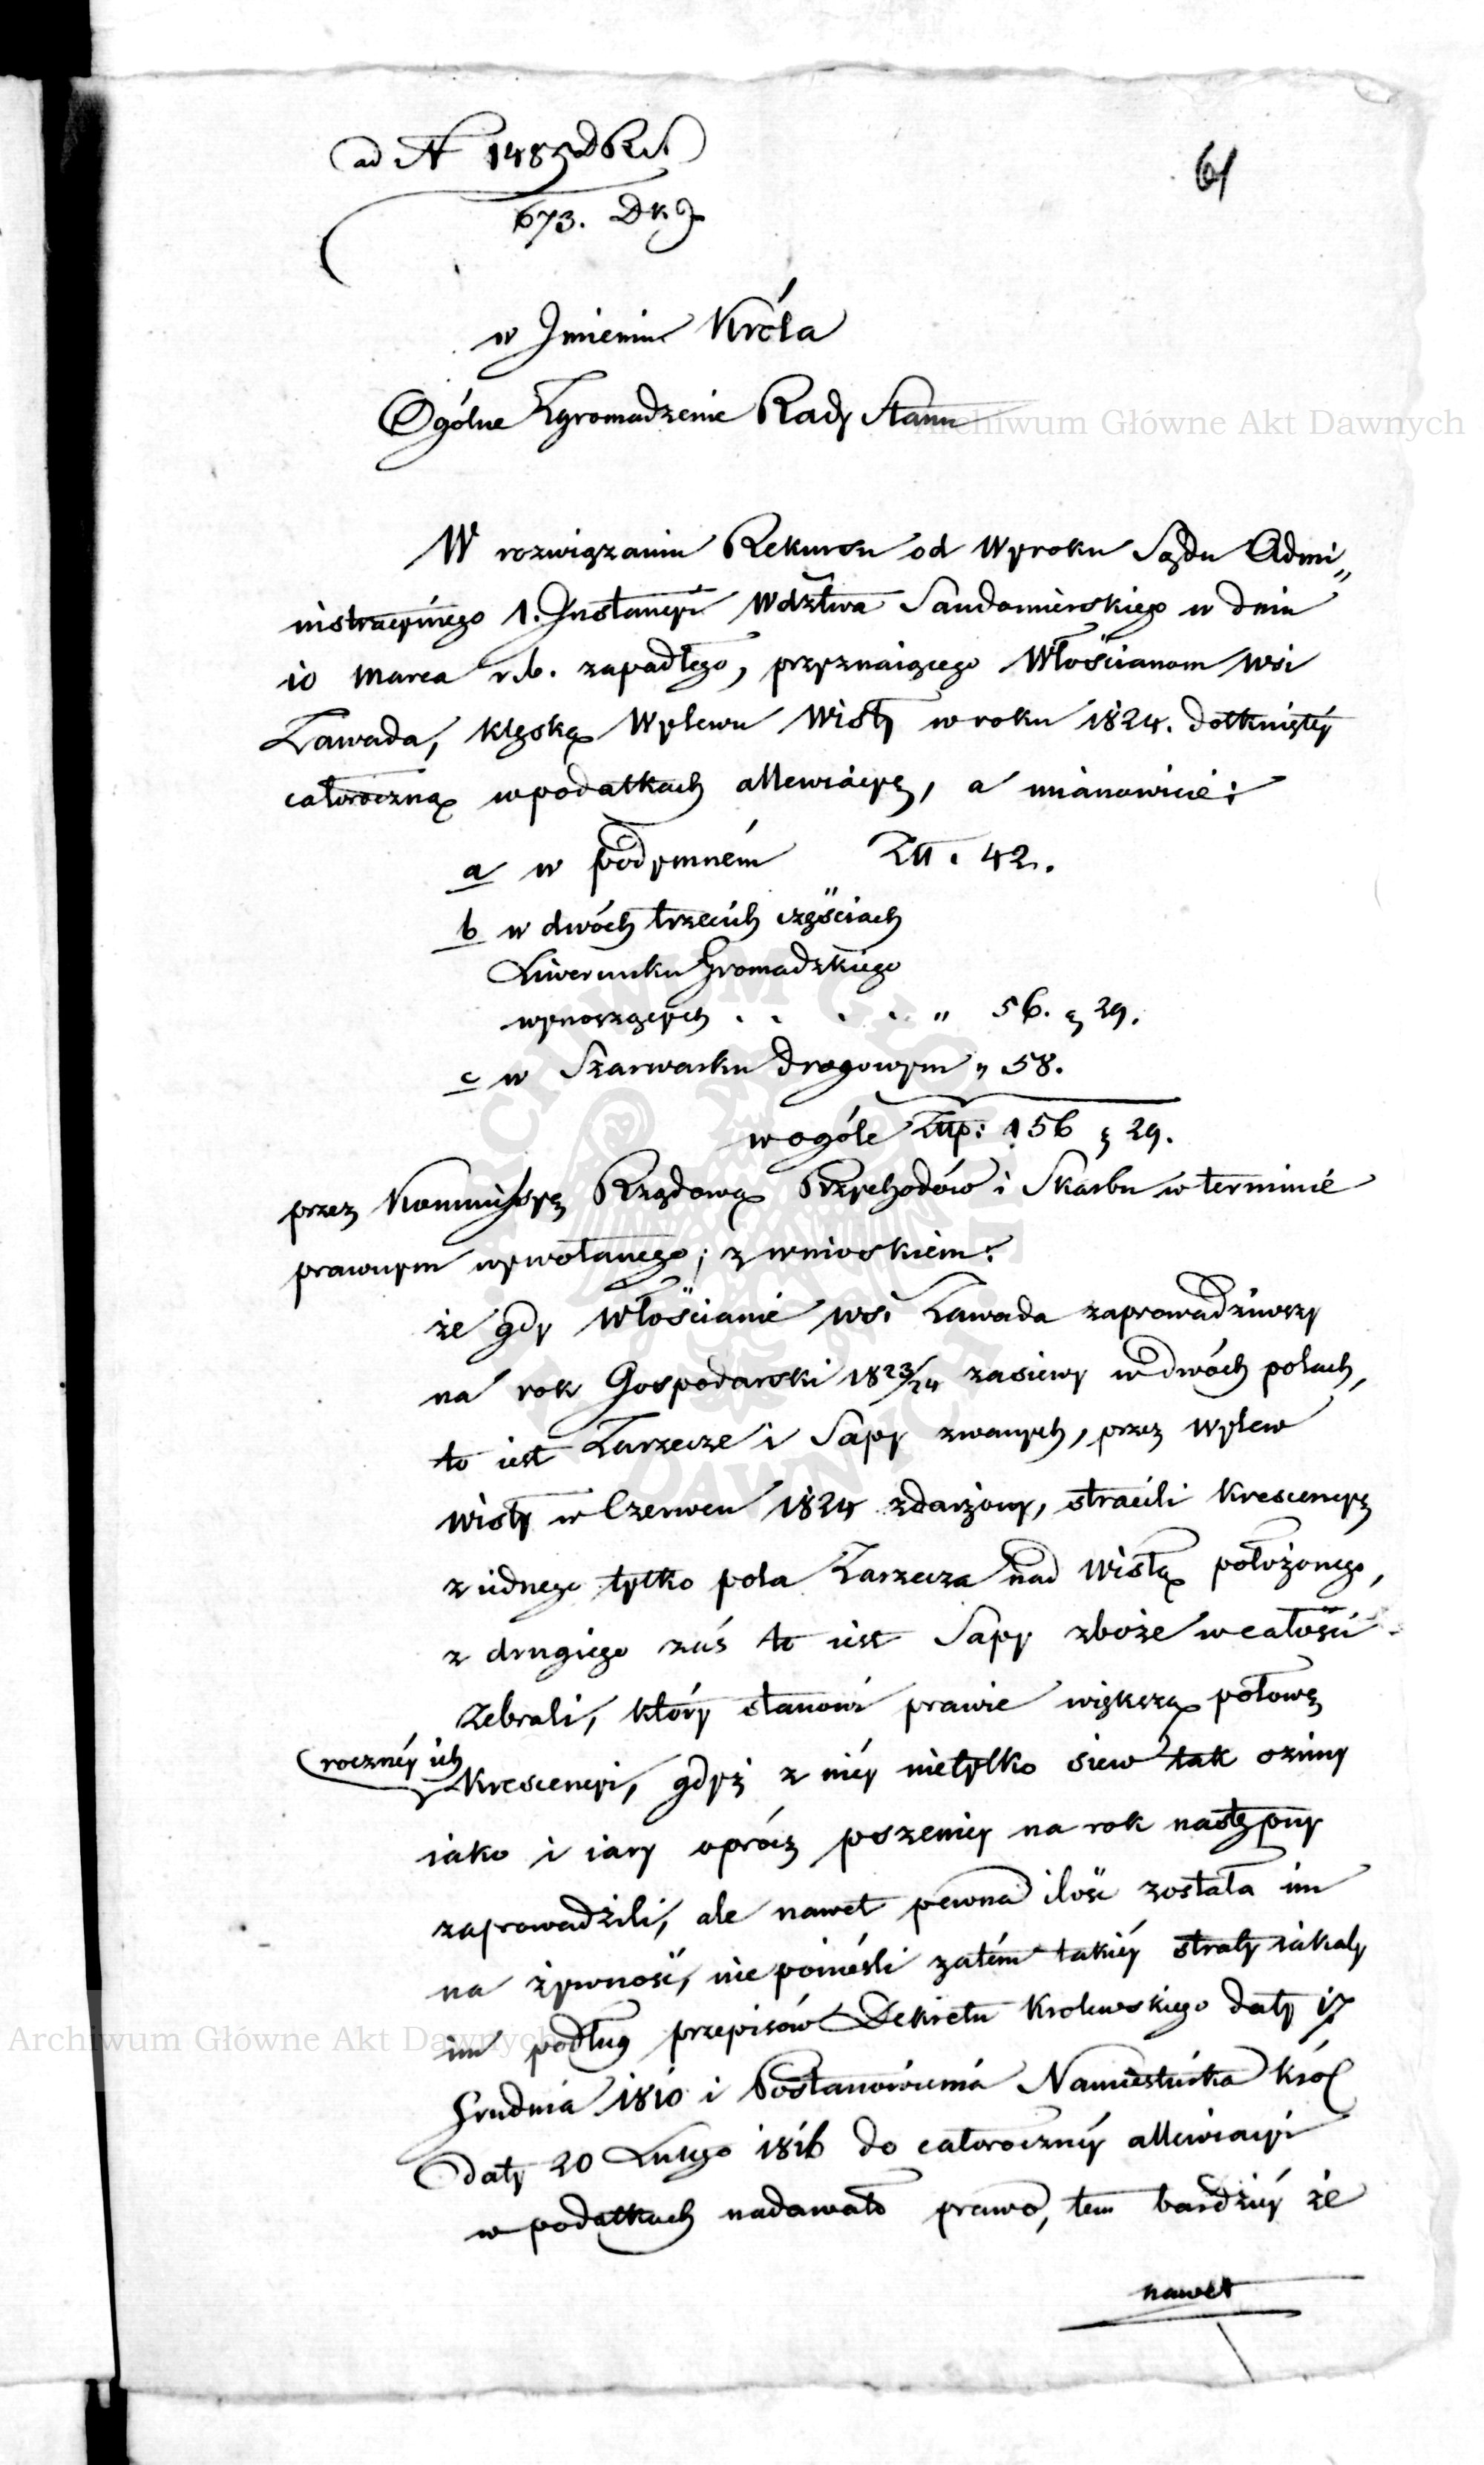 ad N 1485 DRS.
61
673. D.K.J.
w Jmieniu Króla
Ogólne Zgromadzenie Rady Stanu
Archiwum Główne Akt Dawnych
W rozwiązaniu Rekursu od Wyroku Sądu Admi„
nistracyinego 1. Instancyi Wdztwa Sandomirskiego w dniu
10 Marca r.b. zapadłego, przyznaiącego Włościanom Wsi
Zawada, klęską Wylewu Wisły w roku 1824. dotkniętéy
całoroczną w podatkach allewiacyę, a mianowicie:
a w podymném Złl. 42.
b w dwóch trzecich częściach
Liwerunku Gromadzkiego
wynoszących . . . . „ 56. g 29.
c w Szarwarku drogowym „ 58.
wogóle Złlp: 156 g 29.
przez Kommissyę Rządową Przychodów i Skarbu w terminie
prawnym wywołanego; z wnioskiem:
że gdy Włościanie wsi Zawada zaprowadziwszy
na rok Gospodarski 1823/24 zasiewy w dwóch polach,
to iest Zarzecze i Sapy zwanych, przez wylew
Wisły w Czerwcu 1824 zdarzony, stracili krescencyę
z iednego tylko pola Zarzecza nad Wisłą położonego,
z drugiego zaś to iest Sapy zboże w całości
zebrali, który stanowi prawie większą połowę
rocznéy ich
Krescencyi, gdyż z niéy nietylko siew tak ozimy
iako i iary oprócz pszenicy na rok następny
zaprowadzili, ale nawet pewna ilość została im
na żywność, nie ponieśli zatém takiéy straty iakaby
im podług przepisów Dekretu Krolewskiego daty 17
Archiwum Główne Akt Dawnych
Grudnia 1810 i Postanowienia Namiestnika Król
daty 20 Lutego 1816 do całorocznéy allewiacyi
w podatkach nadawało prawo, tem bardziéy że
nawet